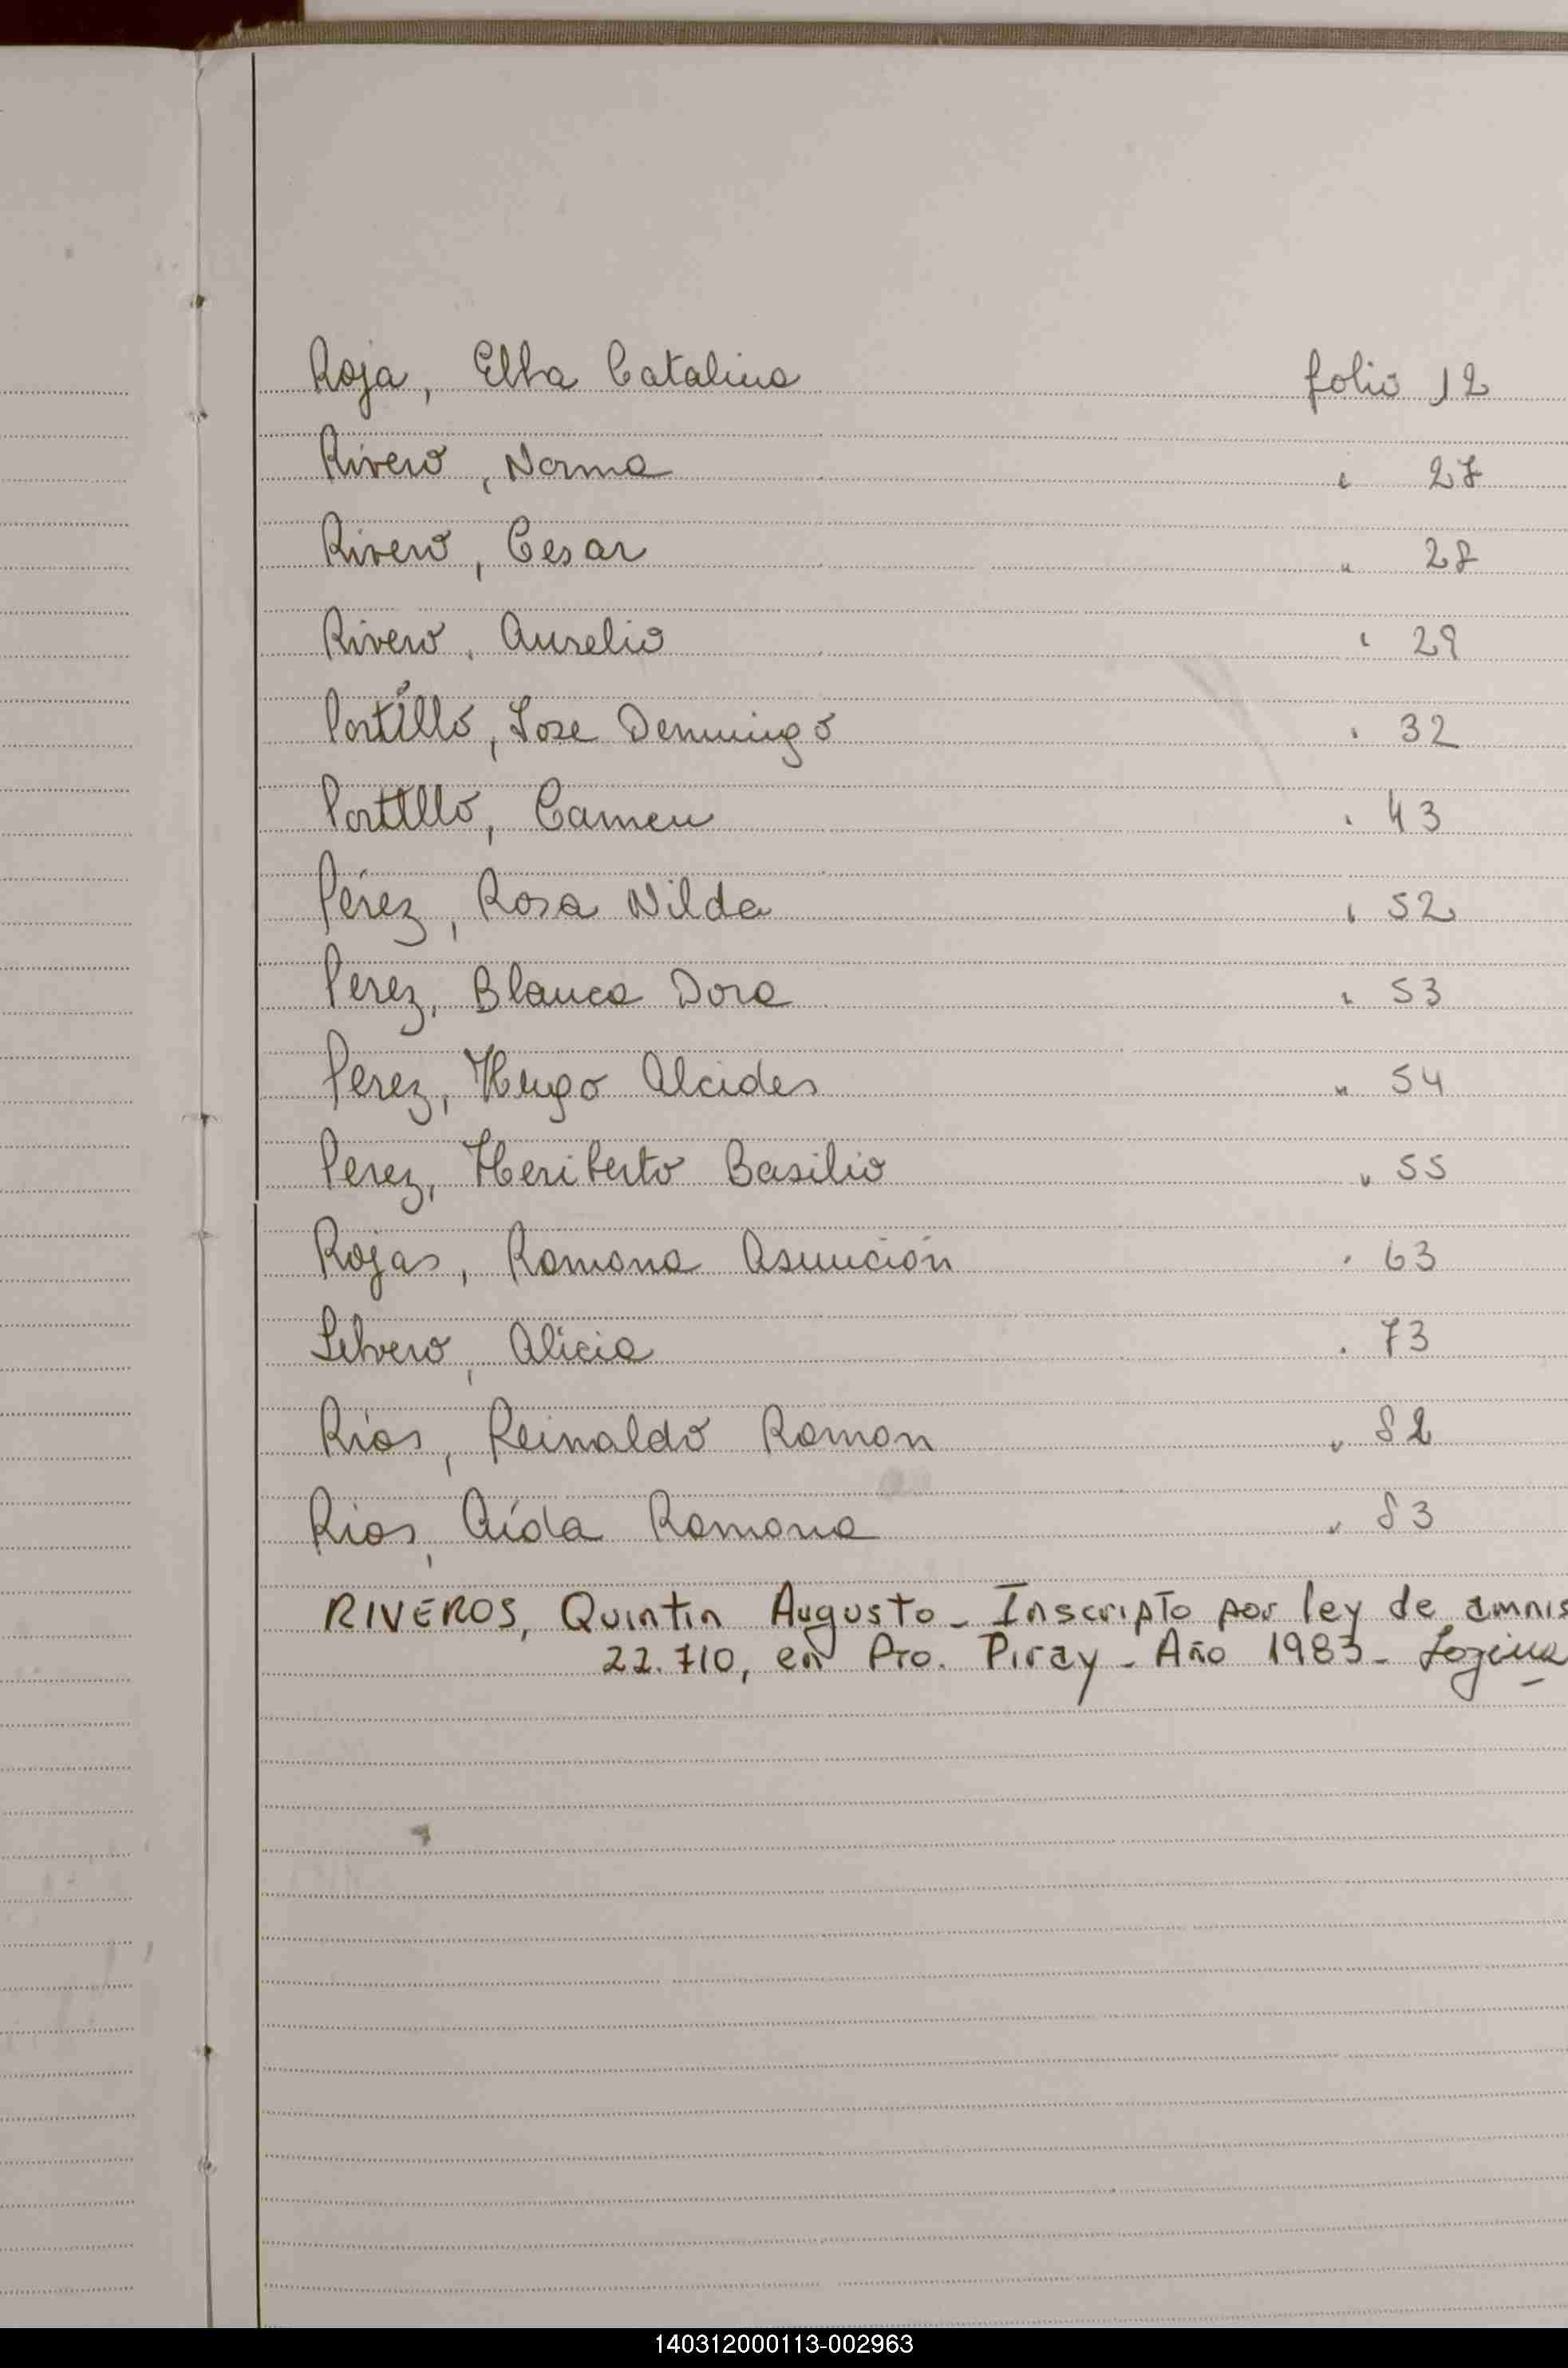 Roja, Elba Catalina folio 12
Rivero, Norma " 27
Rivero, Cesar " 28
Rivero, Aurelio " 29
Portillo, Jose Domingo " 32
Portillo, Carmen " 43
Pérez, Rosa Nilda " 52
Perez, Blanca Dora " 53
Perez, Hugo Alcides " 54
Perez, Heriberto Basilio " 55
Rojas, Ramona Asunción " 63
Silvero, Alicia " 73
Ríos, Reinaldo Ramon " 82
Rios, Aída Ramona " 83
RIVEROS, Quintin Augusto - Inscripto por ley de amnis
22.710, en Pto. Piray - Año 1983 -
140312000113-002963